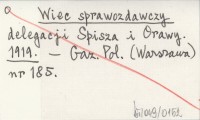 Wiec sprawozdawczy
delegacji Spisza i Orawy.
1919. — Gaz. Pol. (Warszawa)
nr 185.